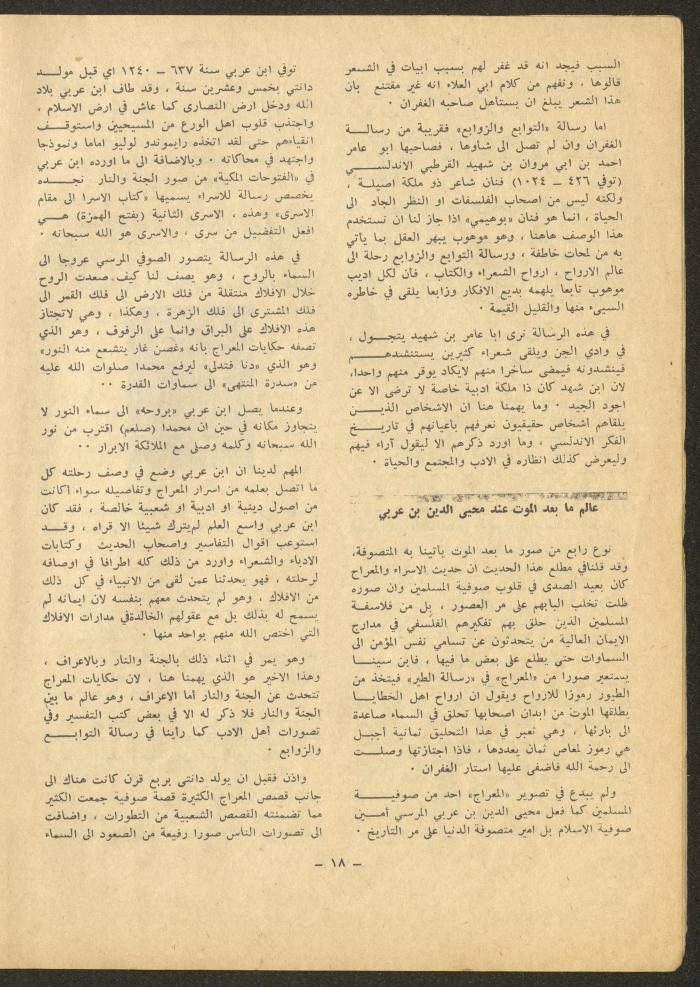 السبب فيجد انه قد غفر لهم بسبب ابيات في الشعر
قالوها ، ونفهم من كلام ابي العلاء انه غير مقتنع بان
هذا الشعر يبلغ ان يستاهل صاحبه الغفران ٠
اما رسالة «التوابع والزوابع» فقريبة من رسالة
الغفران وان لم تصل الى شاوها ، فصاحبها ابو عامر
احمد بن ابي مروان بن شهيد القرطبي الاندلسي
(توفي ٤٢٦ – ١٠٢٤) فنان شاعر ذو ملكة اصيلة ،
ولكنه ليس من اصحاب الفلسفات او النظر الجاد الى
الحياة ، انما هو فنان «بوهيمي» اذا جاز لنا ان نستخدم
هذا الوصف هاهنا ، وهو موهوب يبهر العقل بما يأتي
به من لمحات خاطفة ، ورسالة التوابع والزوابع رحلة الى
عالم الارواح ، ارواح الشعراء والكتاب ، فان لكل اديب
موهوب تابعا يلهمه بديع الافكار وزابعا يلقى في خاطره
السيىء منها والقليل القيمة ٠
في هذه الرسالة نرى ابا عامر بن شهيد يتجول ،
في وادي الجن ويلقى شعراء كثيرين يستنشدهم
فينشدونه فيمضى ساخرا منهم لايكاد يوقر منهم واحدا،
لان ابن شهد كان ذا ملكة ادبية خاصة لا ترضى الا عن
اجود الجيد ٠ وما يهمنا هنا ان الاشخاص الذين
يلقاهم اشخاص حقيقيون نعرفهم باعيانهم في تاريخ
الفكر الاندلسي ، وما اورد ذكرهم الا ليقول آراء فيهم
وليعرض كذلك انظاره في الادب والمجتمع والحياة ٠
عالم ما بعد الموت عند محيى الدين بن عربي
نوع رابع من صور ما بعد الموت يأتينا به المتصوفة،
وقد قلنافي مطلع هذا الحديث ان حديث الاسراء والمعراج
كان بعيد الصدى في قلوب صوفية المسلمين وان صوره
ظلت تخلب البابهم على مر العصور ، بل من فلاسفة
المسلمين الذين حلق بهم تفكيرهم الفلسفي في مدارج
الايمان العالية من يتحدثون عن تسامي نفس المؤمن الى
السماوات حتى يطلع على بعض ما فيها ، فابن سينا
يستعير صورا من «المعراج» في «رسالة الطير» فيتخذ من
الطيور رموزا للارواح ويقول ان ارواح اهل الخطايا
يطلقها الموت من ابدان اصحابها تحلق في السماء صاعدة
الى بارئها ، وهي تعبر في هذا التحليق ثمانية أجبل
هي رموز لمعاص ثمان يعددها ، فاذا اجتازتها وصلت
الى رحمة الله فاضفى عليها استار الغفران ٠
ولم يبدع في تصوير «المعراج» احد من صوفية
المسلمين كما فعل محيى الدين بن عربي المرسي أمين
صوفية الاسلام بل امير متصوفة الدنيا على مر التاريخ ٠
توفي ابن عربي سنة ٦٣٧ – ١٢٤٠ اي قبل مولد
دانتي بخمس وعشرين سنة ، وقد طاف ابن عربي بلاد
الله ودخل ارض النصارى كما عاش في ارض الاسلام ،
واجتذب قلوب اهل الورع من المسيحيين واستوقف
انقياءهم حتى لقد اتخذه رايموندو لوليو اماما ونموذجا
واجتهد في محاكاته ٠ وبالاضافة الى ما اورده ابن عربي
في «الفتوحات المكية» من صور الجنة والنار نجده
يخصص رسالة للاسراء يسميها «كتاب الاسرا الى مقام
الاسرى» وهذه ، الاسرى الثانية (بفتح الهمزة) هي
افعل التفضيل من سرى ، والاسرى هو الله سبحانه ٠
في هذه الرسالة يتصور الصوفي المرسي عروجا الى
السماء بالروح ، وهو يصف لنا كيف صعدت الروح
خلال الافلاك منتقلة من فلك الارض الى فلك القمر الى
فلك المشترى الى فلك الزهرة ، وهكذا ، وهي لاتجتاز
هذه الافلاك على البراق وانما على الرفوف ، وهو الذي
تصفه حكايات المعراج بانه «غصن غار يتشعع منه النور»
وهو الذي «دنا فتدلى» ليرفع محمدا صلوات الله عليه
من «سدرة المنتهى» الى سماوات القدرة ٠٠
وعندما يصل ابن عربي «بروحه» الى سماء النور لا
يتجاوز مكانه في حين ان محمدا (صلعم) اقترب من نور
الله سبحانه وكلمه وصلى مع الملائكة الابرار ٠٠
المهم لدينا ان ابن عربي وضع في وصف رحلته كل
ما اتصل بعلمه من اسرار المعراج وتفاصيله سواء أكانت
من اصول دينية او ادبية او شعبية خالصة ، فقد كان
ابن عربي واسع العلم لم يترك شيئا الا قراه ، وقد
استوعب اقوال التفاسير واصحاب الحديث وكتابات
الادباء والشعراء واورد من ذلك كله اطرافا في اوصافه
لرحلته ، فهو يحدثنا عمن لقى من الانبياء في كل ذلك
من الافلاك ، وهو لم يتحدث معهم بنفسه لان ايمانه لم
يسمح له بذلك بل مع عقولهم الخالدةفي مدارات الافلاك
التي اختص الله منهم بواحد منها ٠
وهو يمر في اثناء ذلك بالجنة والنار وبالاعراف ،
وهذا الاخير هو الذي يهمنا هنا ، لان حكايات المعراج
تتحدث عن الجنة والنار أما الاعراف ، وهو عالم ما بين
الجنة والنار فلا ذكر له الا في بعض كتب التفسير وفي
تصورات أهل الادب كما رأينا في رسالة التوابع
والزوابع ٠
واذن فقبل ان يولد دانتى بربع قرن كانت هناك الى
جانب قصص المعراج الكثيرة قصة صوفية جمعت الكثير
مما تضمنته القصص الشعبية من التطورات ، واضافت
الى تصورات الناس صورا رفيعة من الصعود الى السماء
– ١٨ –